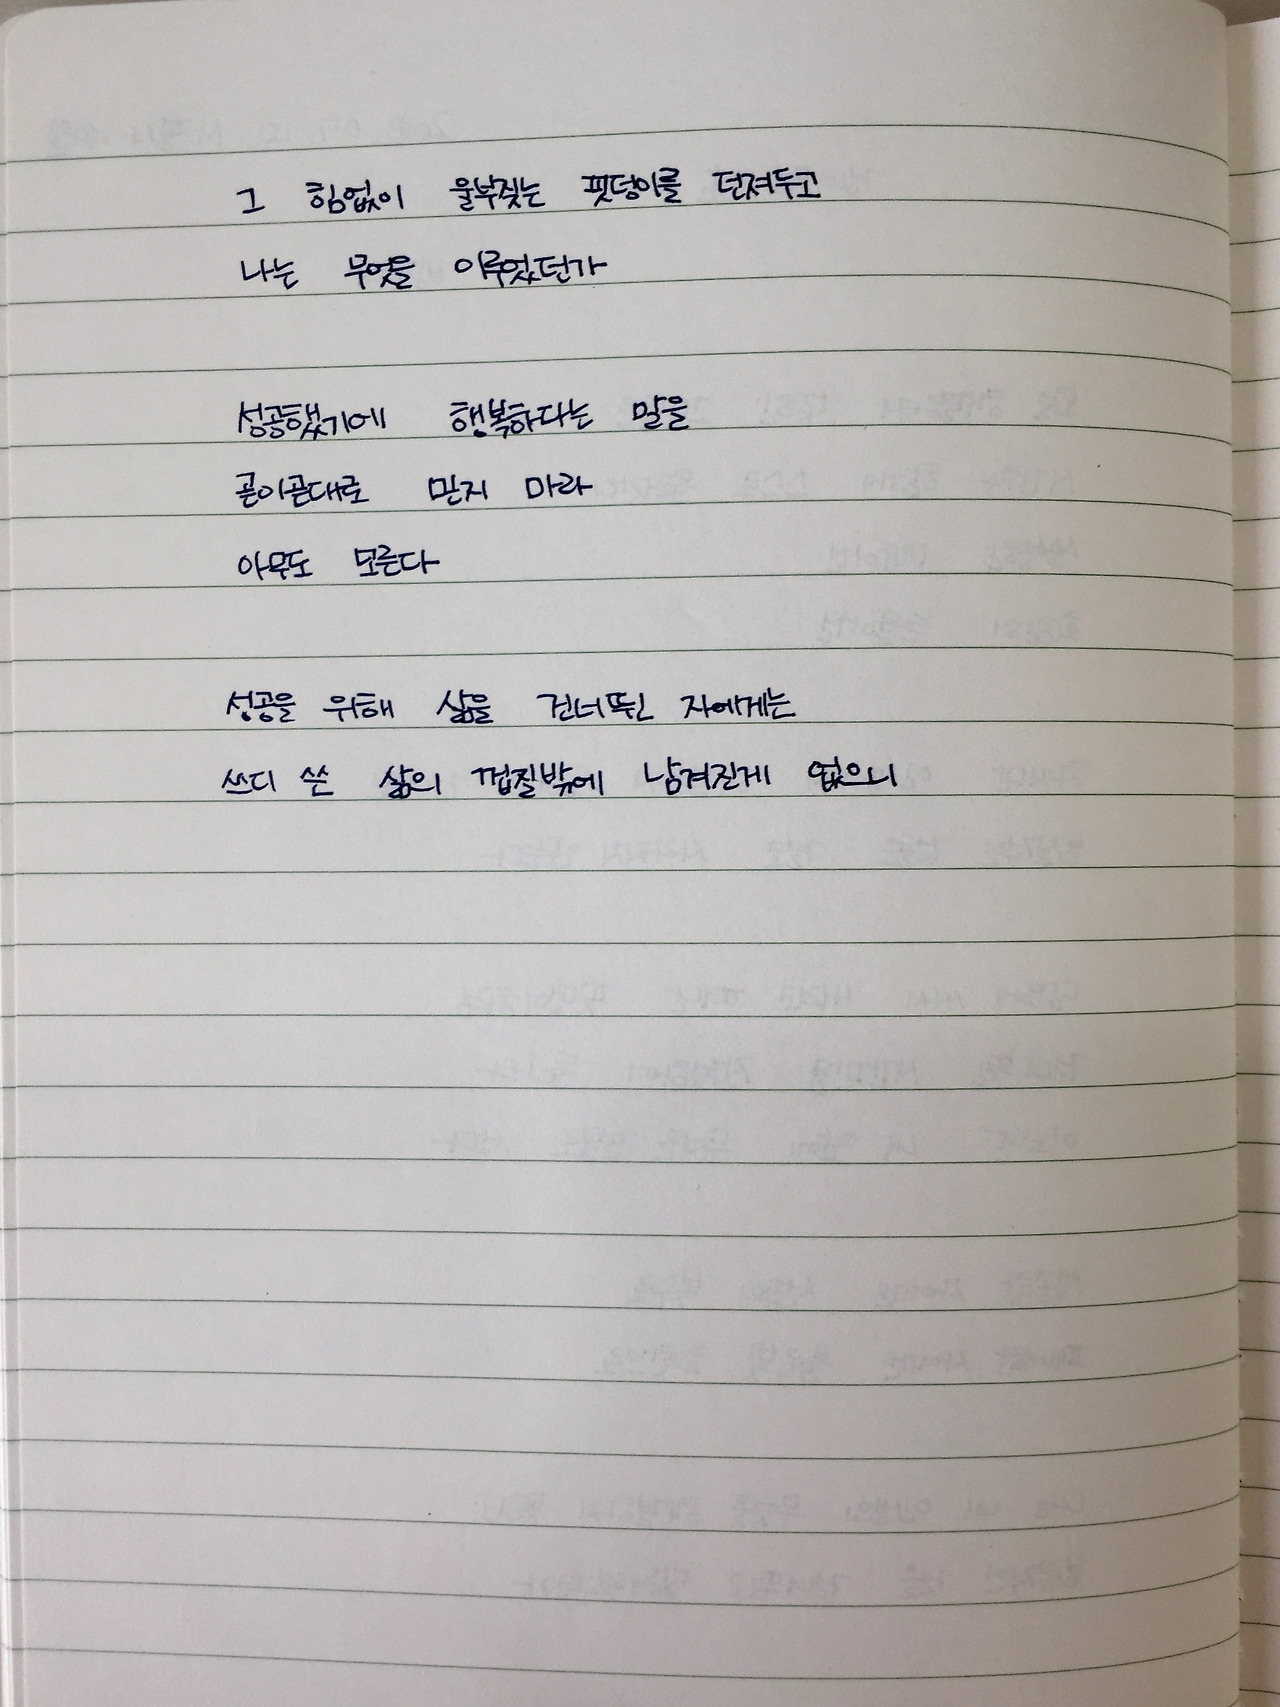 그 힘없이 울부짖는 핏덩이를 던져두고
나는 무엇을 이루었던가
성공했기에 행복하다는 말을
곧이곧대로 믿지 마라
아무도 모른다
성공을 위해 삶을 건너뛴 자에게는
쓰디 쓴 삶의 껍질밖에 남겨진게 없으니